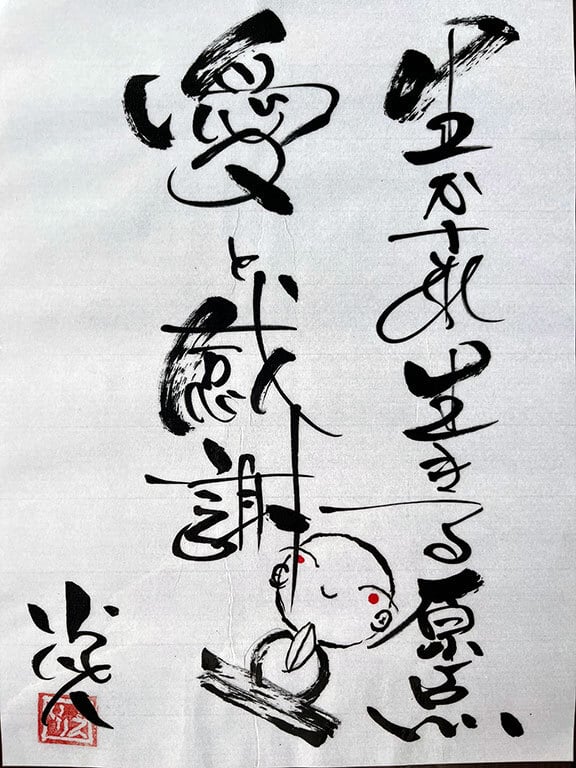 生かされ生きる原点
愛と感謝